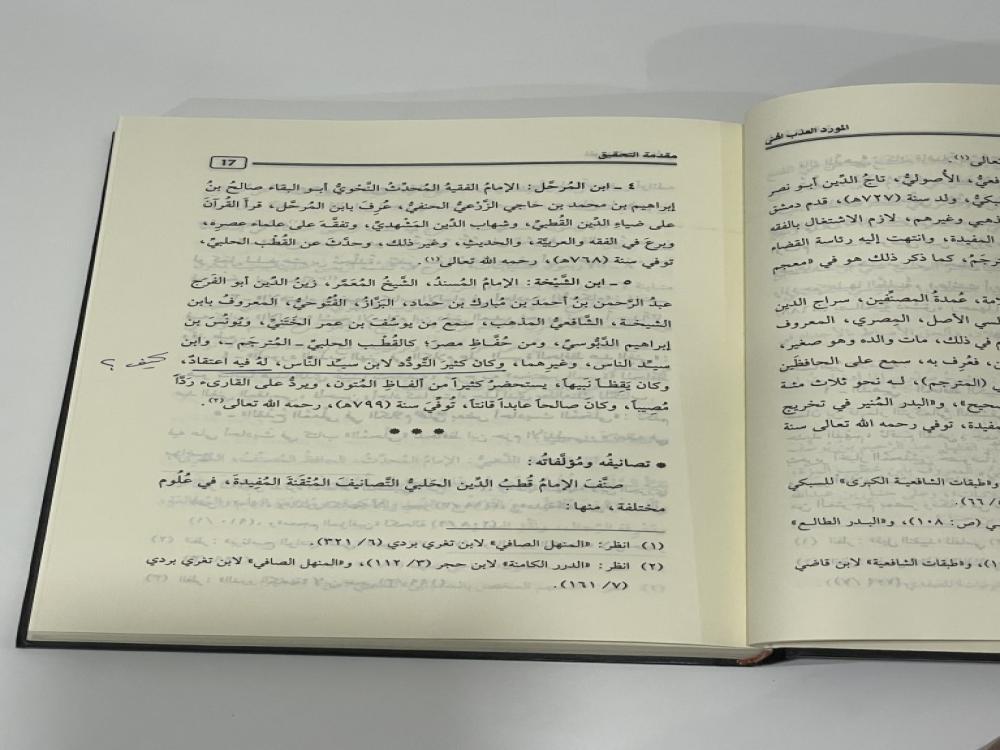 المورد العذب الهني
تعالى(١).
فعيُّ، الأصوليُّ، تاجُ الدّين أبو نصر
سبكيُّ، ولد سنة (٧٢٧هـ)، قدم دمشق
ذهبي وغيرهم، لازم الاشتغال بالفقه
المفيدة، وانتهت إليه رئاسة القضاء
مترجَمُ، كما ذكر ذلك هو في «معجم
مة، عُمدةُ المصنّفين، سراج الدين
لسي الأصل، المصري، المعروف
م في ذلك، مات والده وهو صغير،
ن، فعُرف به، سمع على الحافظَين
ي (المترجم)، لـه نحو ثلاث مئـة
صحيح»، و«البدر المُنير في تخريج
مفيدة، توفي رحمه الله تعالى سنة
و«طبقات الشافعية الكبرى» للسبكي
/ ٦٦).
ي (ص: ١٠٨)، و«البدر الطالـع»
١)، و«طبقات الشافعية» لابن قاضي
مقدمة التحقيق
17
٤ ـ ابن المُرحّل: الإمامُ الفقيهُ المُحدّثُ النّحويُّ أبـو البقاء صالحُ بنُ
إبراهيم بن محمد بن حاجي الزَّرْعيُّ الحنفيُّ، عُرِفَ بابن المُرحَّل، قرأ القُرآنَ
على ضياءِ الدِّين القُطبيِّ، وشهاب الدِّين المَشْهديِّ، وتفقَّـه على علماء عصره،
وبرعَ في الفقه والعربيَّة، والحديثِ، وغير ذلك، وحدَّثَ عن القُطْب الحلبيِّ،
توفي سنة (٧٦٨هـ)، رحمه الله تعالى(١).
٥ ـ ابن الشَّيْخة: الإمامُ المُسندُ، الشَّيخُ المُعمَّر، زينُ الدِّين أبو الفَرَج
عبدُ الرَّحمن بنُ أحمدَ بن مُبارك بن حماد، البزَّازُ، الفُتُوحيُّ، المعروفُ بابن
الشيخـة، الشَّافعيُّ المذهب، سمع من يوسُفَ بن عمر الختَنيِّ، ويُونُسَ بن
إبراهيم الدَّبُّوسيِّ، ومن حُفَّاظِ مصرَ؛ كالقُطْب الحلبيِّ ـ المُترجَم ـ، وابن
سيِّد الناس، وغيرهما، وكان كثيرَ التَّودُّد لابن سيِّـد النَّاس، لهُ فيه اعتقادٌ،
وكان يَقِظاً نَبيهاً، يستحضرُ كثيراً من ألفـاظِ المُتون، ويردُّ على القارىء ردَّاً
مُصيباً، وكـان صالحاً عابداً قانتاً، تُوفِّيَ سنة (٧٩٩هـ)، رحمه الله تعالى(٢).
* * *
* تصانيفُه ومُؤلَّفاتُه:
صنَّفَ الإمامُ قُطبُ الدِّين الحلبيُّ التَّصانيفَ المُتقَنةَ المُفيدة، في عُلُوم
مختلفة، منها:
(١) انظر: «المنهل الصافي» لابن تغري بردي (٦/ ٣٢١).
(٢) انظر: «الدرر الكامنة» لابن حجر (٣/ ١١٢)، و«المنهل الصافي» لابن تغري بردي
(٧/ ١٦١).